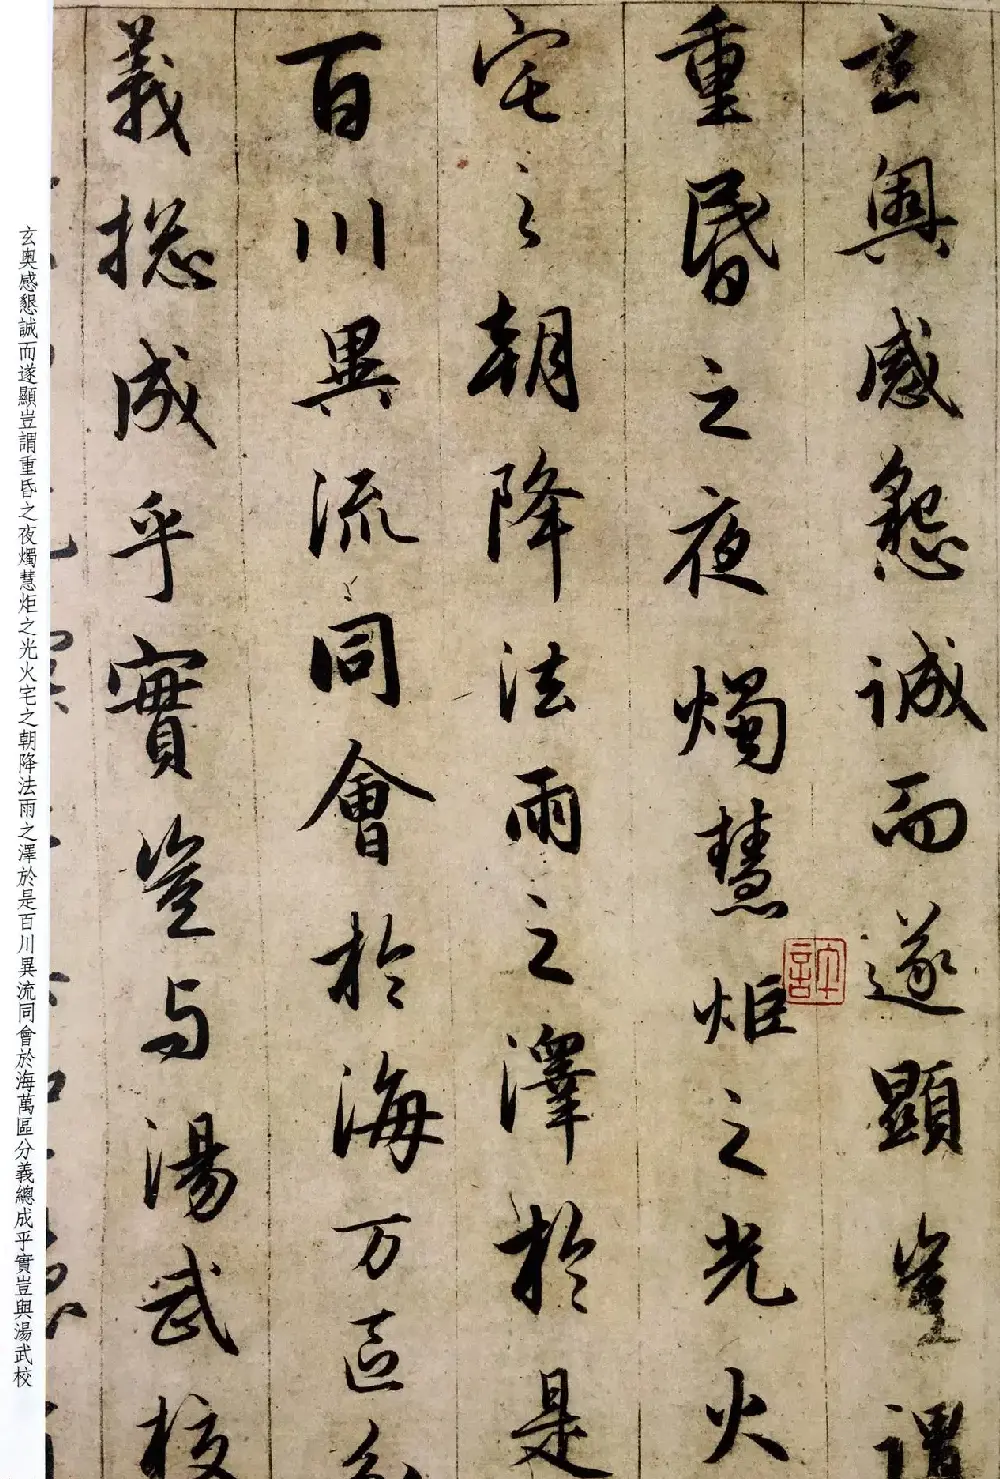 玄奧感懇誠而遂顯豈謂
重昏之夜燭慧炬之光火
宅之朝降法雨之澤於是
百川異流同會於海万區分
義総成乎實豈与湯武校
玄奧感懇誠而遂顯豈謂重昏之夜燭慧炬之光火宅之朝降法雨之澤於是百川異流同會於海萬區分義總成乎實豈與湯武校